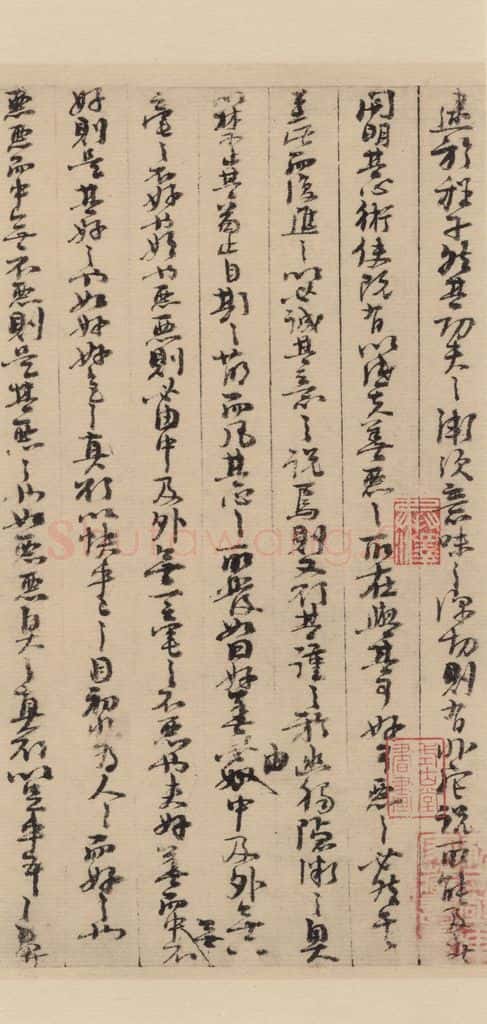 於程子然其功夫之漸次意味之深切則有非它說所能及
開明其心術使既有以識夫善惡之所在與其可好可惡之必然至
此而復進之以必誠其意之說焉則又欲其謹之於幽獨隱微之奧
以禁止其苟且自欺之萌而凡其心之所發如曰好善必由中及外無一
毫之不好也惡惡則必由中及外無一毫之不惡也夫好善而中無不
好則是其好之也如好好色之真欲以快乎己之目初非為人而好之也
惡惡而中無不惡則是其惡之也如惡惡臭之真欲以足乎己之鼻
Shufawang